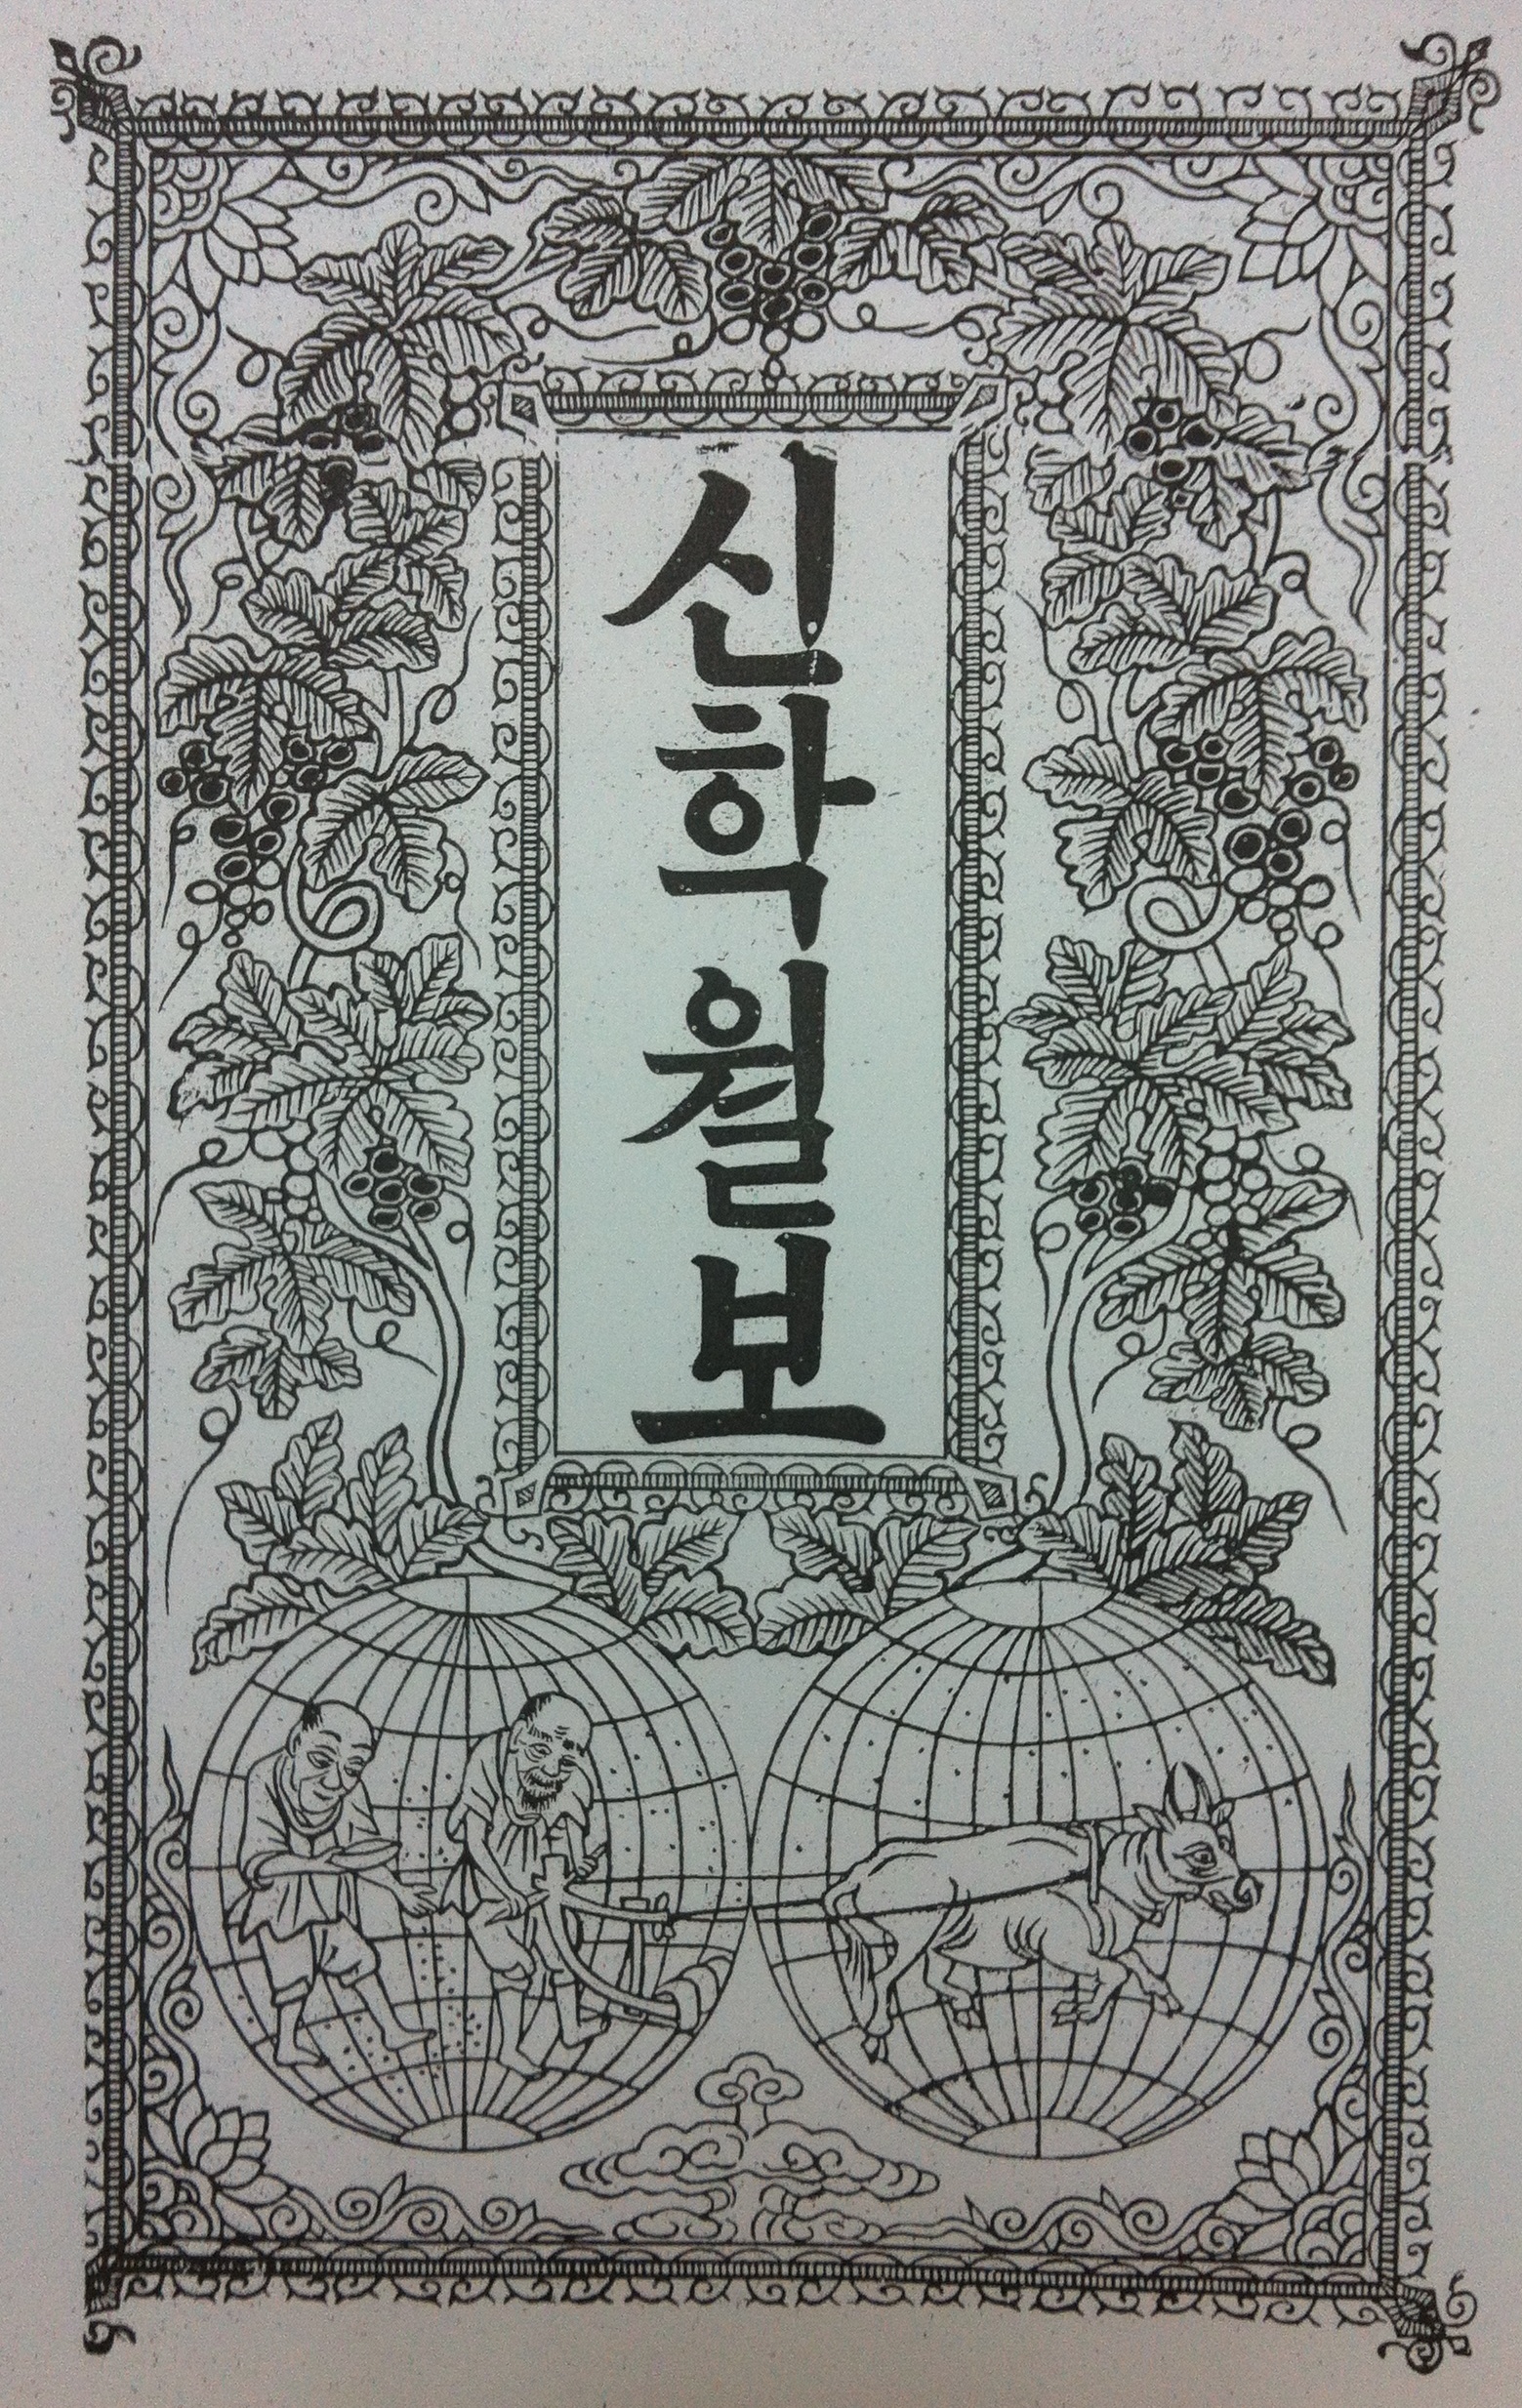 신학월보